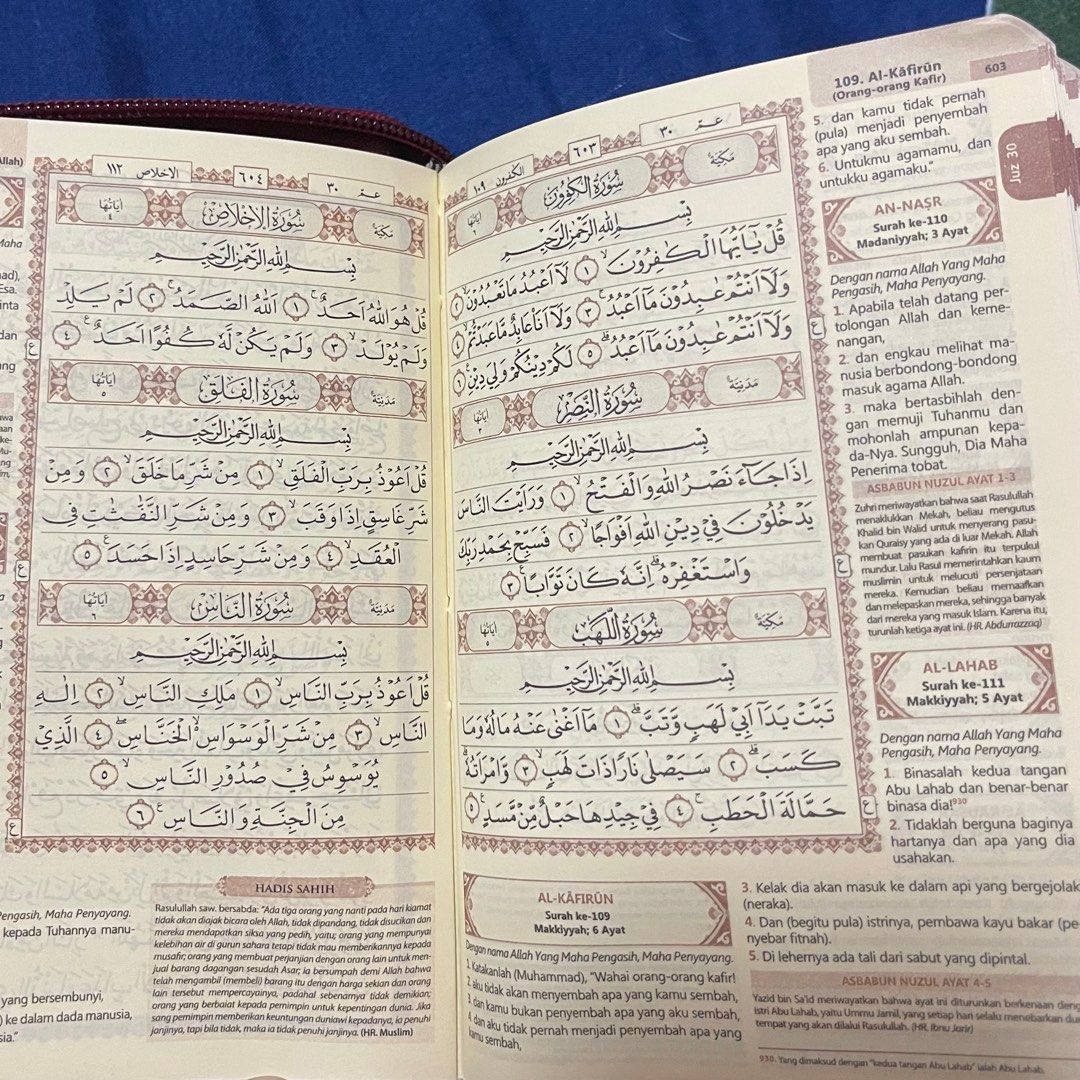 109. Al-Kāfirūn
(Orang-orang Kafir)
603
Juz 30
عمّ ٣٠
٦٠٣
الكفرون ١٠٩
مكية
سورة الكفرون
اياتها ٦
بِسْمِ اللهِ الرَّحْمٰنِ الرَّحِيْمِ
قُلْ يٰٓاَيُّهَا الْكٰفِرُوْنَۙ ١ لَآ اَعْبُدُ مَا تَعْبُدُوْنَۙ ٢
وَلَآ اَنْتُمْ عٰبِدُوْنَ مَآ اَعْبُدُۚ ٣ وَلَآ اَنَا۠ عَابِدٌ مَّا عَبَدْتُّمْۙ ٤
وَلَآ اَنْتُمْ عٰبِدُوْنَ مَآ اَعْبُدُۗ ٥ لَكُمْ دِيْنُكُمْ وَلِيَ دِيْنِࣖ ٦
مدنية
سورة النصر
اياتها ٣
بِسْمِ اللهِ الرَّحْمٰنِ الرَّحِيْمِ
اِذَا جَاۤءَ نَصْرُ اللّٰهِ وَالْفَتْحُۙ ١ وَرَاَيْتَ النَّاسَ
يَدْخُلُوْنَ فِيْ دِيْنِ اللّٰهِ اَفْوَاجًاۙ ٢ فَسَبِّحْ بِحَمْدِ رَبِّكَ
وَاسْتَغْفِرْهُۗ اِنَّهٗ كَانَ تَوَّابًاࣖ ٣
مكية
سورة اللهب
اياتها ٥
بِسْمِ اللهِ الرَّحْمٰنِ الرَّحِيْمِ
تَبَّتْ يَدَآ اَبِيْ لَهَبٍ وَّتَبَّۗ ١ مَآ اَغْنٰى عَنْهُ مَالُهٗ وَمَا
كَسَبَۗ ٢ سَيَصْلٰى نَارًا ذَاتَ لَهَبٍۙ ٣ وَّامْرَاَتُهٗۗ
حَمَّالَةَ الْحَطَبِۚ ٤ فِيْ جِيْدِهَا حَبْلٌ مِّنْ مَّسَدٍࣖ ٥
5. dan kamu tidak pernah
(pula) menjadi penyembah
apa yang aku sembah.
6. Untukmu agamamu, dan
untukku agamaku."
AN-NAṢR
Surah ke-110
Madaniyyah; 3 Ayat
Dengan nama Allah Yang Maha
Pengasih, Maha Penyayang.
1. Apabila telah datang per-
tolongan Allah dan keme-
nangan,
2. dan engkau melihat ma-
nusia berbondong-bondong
masuk agama Allah.
3. maka bertasbihlah den-
gan memuji Tuhanmu dan
mohonlah ampunan kepa-
da-Nya. Sungguh, Dia Maha
Penerima tobat.
ASBABUN NUZUL AYAT 1-3
Zuhri meriwayatkan bahwa saat Rasulullah
menaklukkan Mekah, beliau mengutus
Khalid bin Walid untuk menyerang pasu-
kan Quraisy yang ada di luar Mekah. Allah
membuat pasukan kafirin itu terpukul
mundur. Lalu Rasul memerintahkan kaum
muslimin untuk melucuti persenjataan
mereka. Kemudian beliau memaafkan
dan melepaskan mereka, sehingga banyak
dari mereka yang masuk Islam. Karena itu,
turunlah ketiga ayat ini. (HR. Abdurrazzaq)
AL-LAHAB
Surah ke-111
Makkiyyah; 5 Ayat
Dengan nama Allah Yang Maha
Pengasih, Maha Penyayang.
1. Binasalah kedua tangan
Abu Lahab dan benar-benar
binasa dia!930
2. Tidaklah berguna baginya
hartanya dan apa yang dia
usahakan.
AL-KĀFIRŪN
Surah ke-109
Makkiyyah; 6 Ayat
Dengan nama Allah Yang Maha Pengasih, Maha Penyayang.
1. Katakanlah (Muhammad), "Wahai orang-orang kafir!
2. aku tidak akan menyembah apa yang kamu sembah,
3. dan kamu bukan penyembah apa yang aku sembah,
4. dan aku tidak pernah menjadi penyembah apa yang
kamu sembah,
3. Kelak dia akan masuk ke dalam api yang bergejolak
(neraka).
4. Dan (begitu pula) istrinya, pembawa kayu bakar (pe-
nyebar fitnah).
5. Di lehernya ada tali dari sabut yang dipintal.
ASBABUN NUZUL AYAT 4-5
Yazid bin Sa'id meriwayatkan bahwa ayat ini diturunkan berkenaan deng
Istri Abu Lahab, yaitu Ummu Jamil, yang setiap hari selalu menebarkan dur
tempat yang akan dilalui Rasulullah. (HR. Ibnu Jarir)
930. Yang dimaksud dengan "kedua tangan Abu Lahab" ialah Abu Lahab.
عمّ ٣٠
٦٠٤
الاخلاص ١١٢
مكية
سورة الاخلاص
اياتها ٤
بِسْمِ اللهِ الرَّحْمٰنِ الرَّحِيْمِ
قُلْ هُوَ اللّٰهُ اَحَدٌۚ ١ اَللّٰهُ الصَّمَدُۚ ٢ لَمْ يَلِدْ
وَلَمْ يُوْلَدْۙ ٣ وَلَمْ يَكُنْ لَّهٗ كُفُوًا اَحَدٌࣖ ٤
مدنية
سورة الفلق
اياتها ٥
بِسْمِ اللهِ الرَّحْمٰنِ الرَّحِيْمِ
قُلْ اَعُوْذُ بِرَبِّ الْفَلَقِۙ ١ مِنْ شَرِّ مَا خَلَقَۙ ٢ وَمِنْ
شَرِّ غَاسِقٍ اِذَا وَقَبَۙ ٣ وَمِنْ شَرِّ النَّفّٰثٰتِ فِى
الْعُقَدِۙ ٤ وَمِنْ شَرِّ حَاسِدٍ اِذَا حَسَدَࣖ ٥
مدنية
سورة الناس
اياتها ٦
بِسْمِ اللهِ الرَّحْمٰنِ الرَّحِيْمِ
قُلْ اَعُوْذُ بِرَبِّ النَّاسِۙ ١ مَلِكِ النَّاسِۙ ٢ اِلٰهِ
النَّاسِۙ ٣ مِنْ شَرِّ الْوَسْوَاسِ ەۙ الْخَنَّاسِۖ ٤ الَّذِيْ
يُوَسْوِسُ فِيْ صُدُوْرِ النَّاسِۙ ٥
مِنَ الْجِنَّةِ وَالنَّاسِࣖ ٦
Pengasih, Maha Penyayang.
kepada Tuhannya manu-
yang bersembunyi,
) ke dalam dada manusia,
sia."
HADIS SAHIH
Rasulullah saw. bersabda: "Ada tiga orang yang nanti pada hari kiamat
tidak akan diajak bicara oleh Allah, tidak dipandang, tidak disucikan dan
mereka mendapatkan siksa yang pedih, yaitu; orang yang mempunyai
kelebihan air di gurun sahara tetapi tidak mau memberikannya kepada
musafir; orang yang membuat perjanjian dengan orang lain untuk men-
jual barang dagangan sesudah Asar; ia bersumpah demi Allah bahwa
telah mengambil (membeli) barang itu dengan harga sekian dan orang
lain tersebut mempercayainya, padahal sebenarnya tidak demikian;
orang yang berbaiat kepada pemimpin untuk kepentingan dunia. Jika
sang pemimpin memberikan keuntungan duniawi kepadanya, ia penuhi
janjinya, tapi bila tidak, maka ia tidak penuhi janjinya. (HR. Muslim)